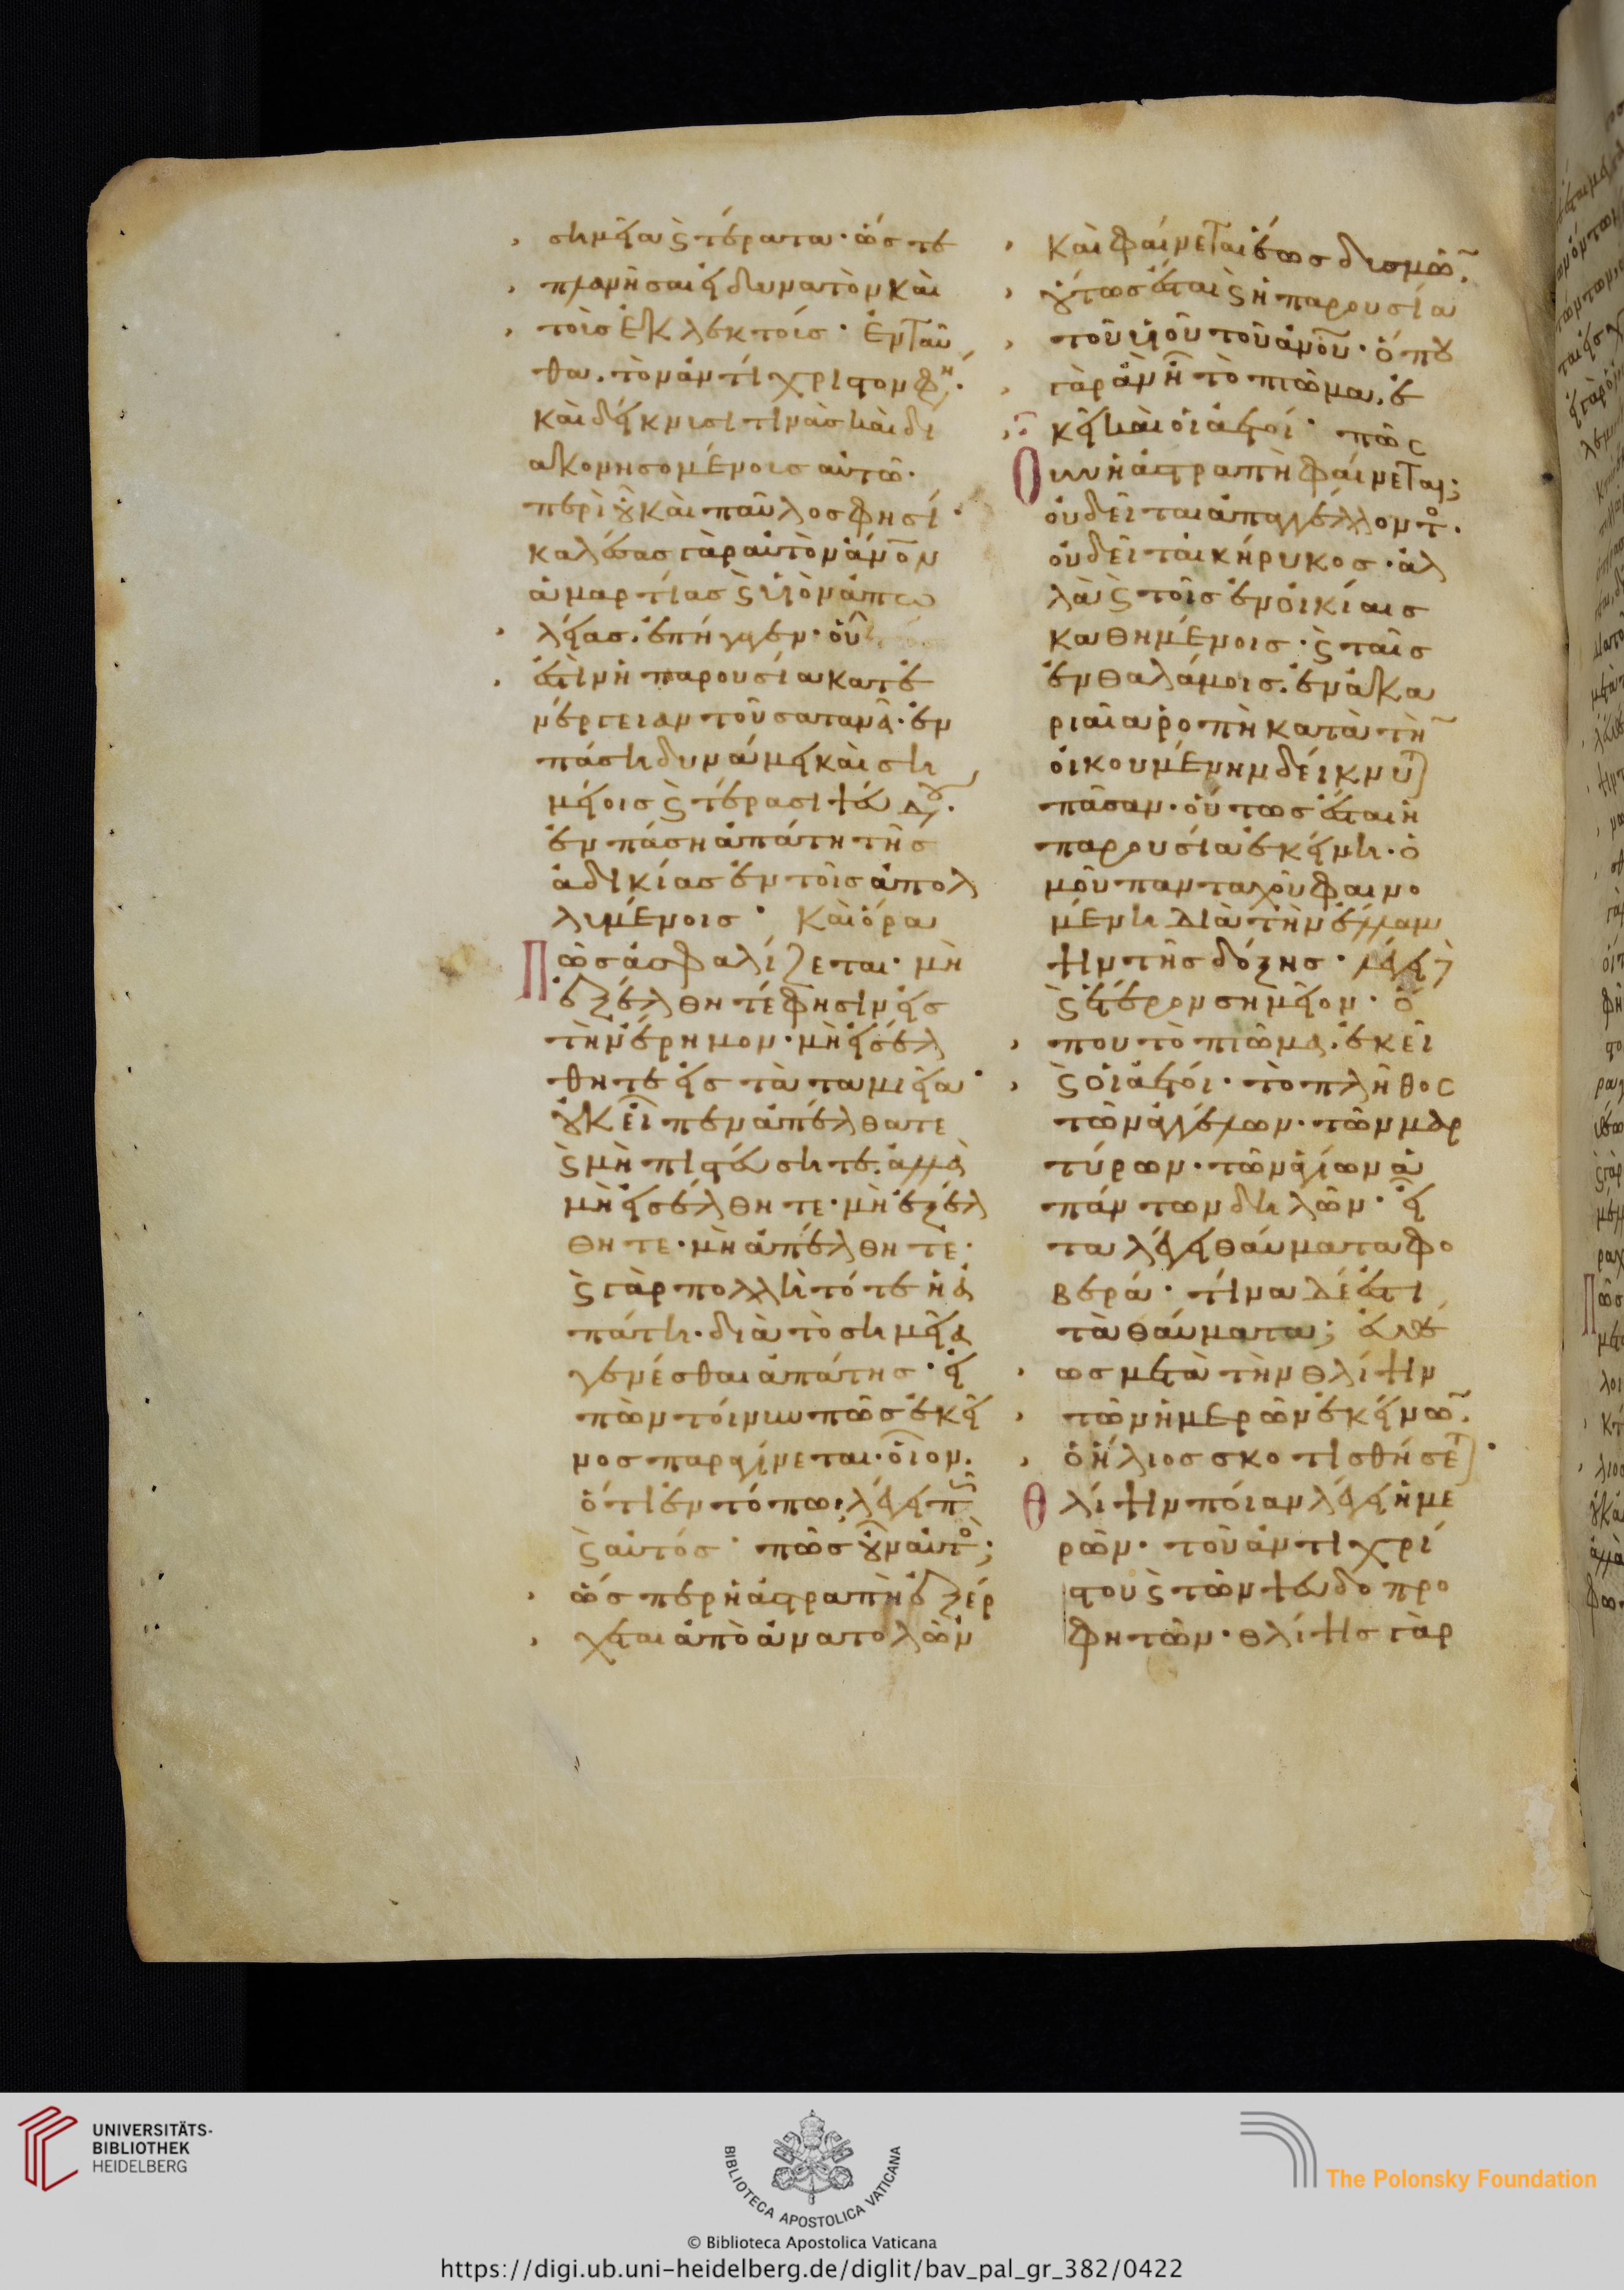 σημεῖα ϗ τέρατα· ὥστε
πλανῆσαι εἰ δυνατὸν καὶ
τοὺς ἐκλεκτούς· Ἐνταῦ
θα, τὸν ἀντίχριστον φη.
καὶ δείκνυσί τινας καὶ δι
ακονησομένους αὐτῶ·
περὶ οὗ καὶ παῦλος φησί·
καλέσας γὰρ αὐτὸν ἄνον
ἁμαρτίας ϗ υἱὸν ἀπω
λείας. ἐπήγαγεν· οὗ
ἐστὶν ἡ παρουσία κατ' ἐ
νέργειαν τοῦ σατανᾶ· ἐν
πάση δυνάμει καὶ ση
μείοις ϗ τέρασι ψεύδους.
ἐν πάση ἀπάτη τῆς
ἀδικίας ἐν τοῖς ἀπολ
λυμένοις· Καὶ ὅρα
Πῶς ἀσφαλίζεται· μὴ
ἐξέλθητέ φησιν εἰς
τὴν ἔρημον· μὴ εἰσέλ
θητε εἰς τὰ ταμιεῖα·
οὐκ εἶπεν ἀπέλθατε
ϗ μὴ πιστεύσητε. ἀλλὰ
μὴ εἰσέλθητε· μὴ ἐξέλ
θητε· μὴ ἀπέλθητε·
ϗ γὰρ πολλὴ τότε ἡ ἀ
πάτη· διὰ τὸ σημεῖα
γενέσθαι ἀπάτης· εἰ
πὼν τοίνυν πῶς ἐκεῖ
νος παραγίνεται· οἷον.
ὅτι ἐν τόπω· λέγει πῶς
ϗ αὐτός· πῶς οὖν αὐτός;
ὥσπερ ἡ ἀστραπὴ ἐξέρ
χεται ἀπὸ ἀνατολῶν
καὶ φαίνεται ἕως δυσμῶν.
οὕτως ἔσται ϗ ἡ παρουσία
τοῦ υἱοῦ τοῦ ἀνου· ὅπου
γὰρ ἂν ἦ τὸ πτῶμα. ἐ
κεῖ καὶ οἱ ἀετοί· πῶς
Οὖν ἡ ἀστραπὴ φαίνεται;
οὐ δεῖται ἀπαγγέλλοντος.
οὐ δεῖται κήρυκος· ἀλ
λὰ ϗ τοῖς ἐν οἰκίαις
καθημένοις· ϗ ταῖς
ἐν θαλάμοις. ἐν ἀκα
ριαία ῥοπῆ κατὰ τὴν
οἰκουμένην δείκνυται
πᾶσαν· οὕτως ἔσται ἡ
παρουσία ἐκείνη· ὁ
μοῦ πανταχοῦ φαινο
μένη διὰ τὴν ἔκλαμ
ψιν τῆς δόξης· λέγει δὲ
ϗ ἕτερον σημεῖον· ὅ
που τὸ πτῶμα. ἐκεῖ
ϗ οἱ ἀετοί· τὸ πλῆθος
τῶν ἀγγέλων· τῶν μαρ
τύρων· τῶν ἁγίων ἁ
πάντων δηλῶν· εἶ
τα λέγει θαύματα φο
βερά· τίνα δέ ἐστι
τὰ θαύματα; εὐθέ
ως μετὰ τὴν θλίψιν
τῶν ἡμερῶν ἐκείνων.
ὁ ἥλιος σκοτισθήσεται·
Θλίψιν ποίαν λέγει ἡμε
ρῶν· τοῦ ἀντιχρί
στου ϗ τῶν ψευδοπρο
φητῶν· θλίψις γὰρ
UNIVERSITÄTS-
BIBLIOTHEK
HEIDELBERG
BIBLIOTECA APOSTOLICA VATICANA
© Biblioteca Apostolica Vaticana
The Polonsky Foundation
https://digi.ub.uni-heidelberg.de/diglit/bav_pal_gr_382/0422